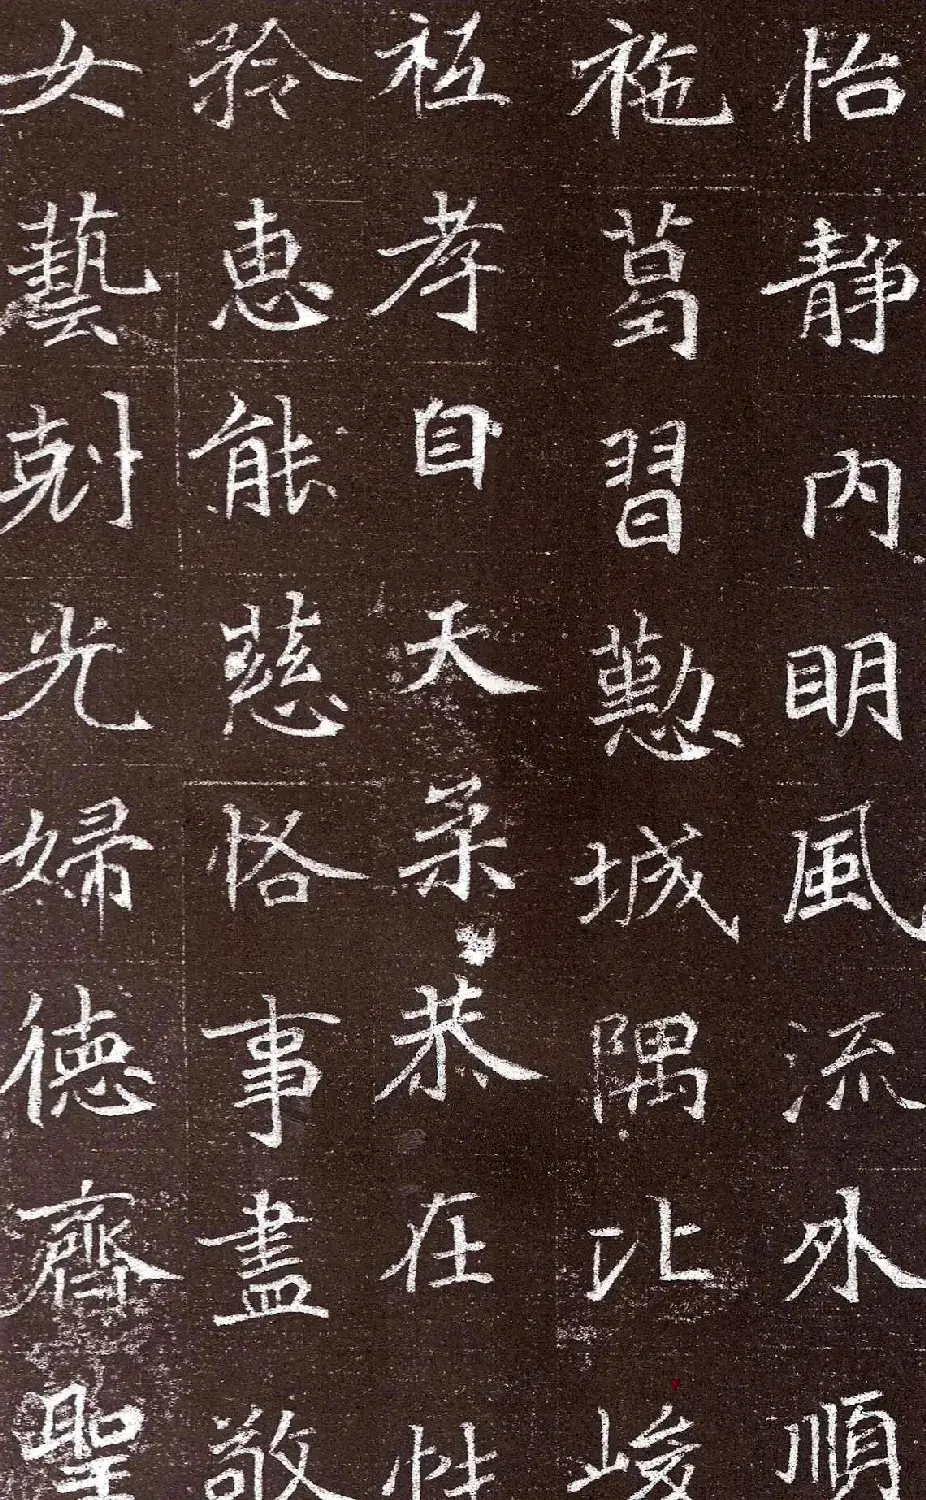 怡靜内明風流外順
袘葛習懃城隅比峻
衽孝自天柔恭在性
矜惠能慈恪事盡敬
女藝剋光婦德齊聖